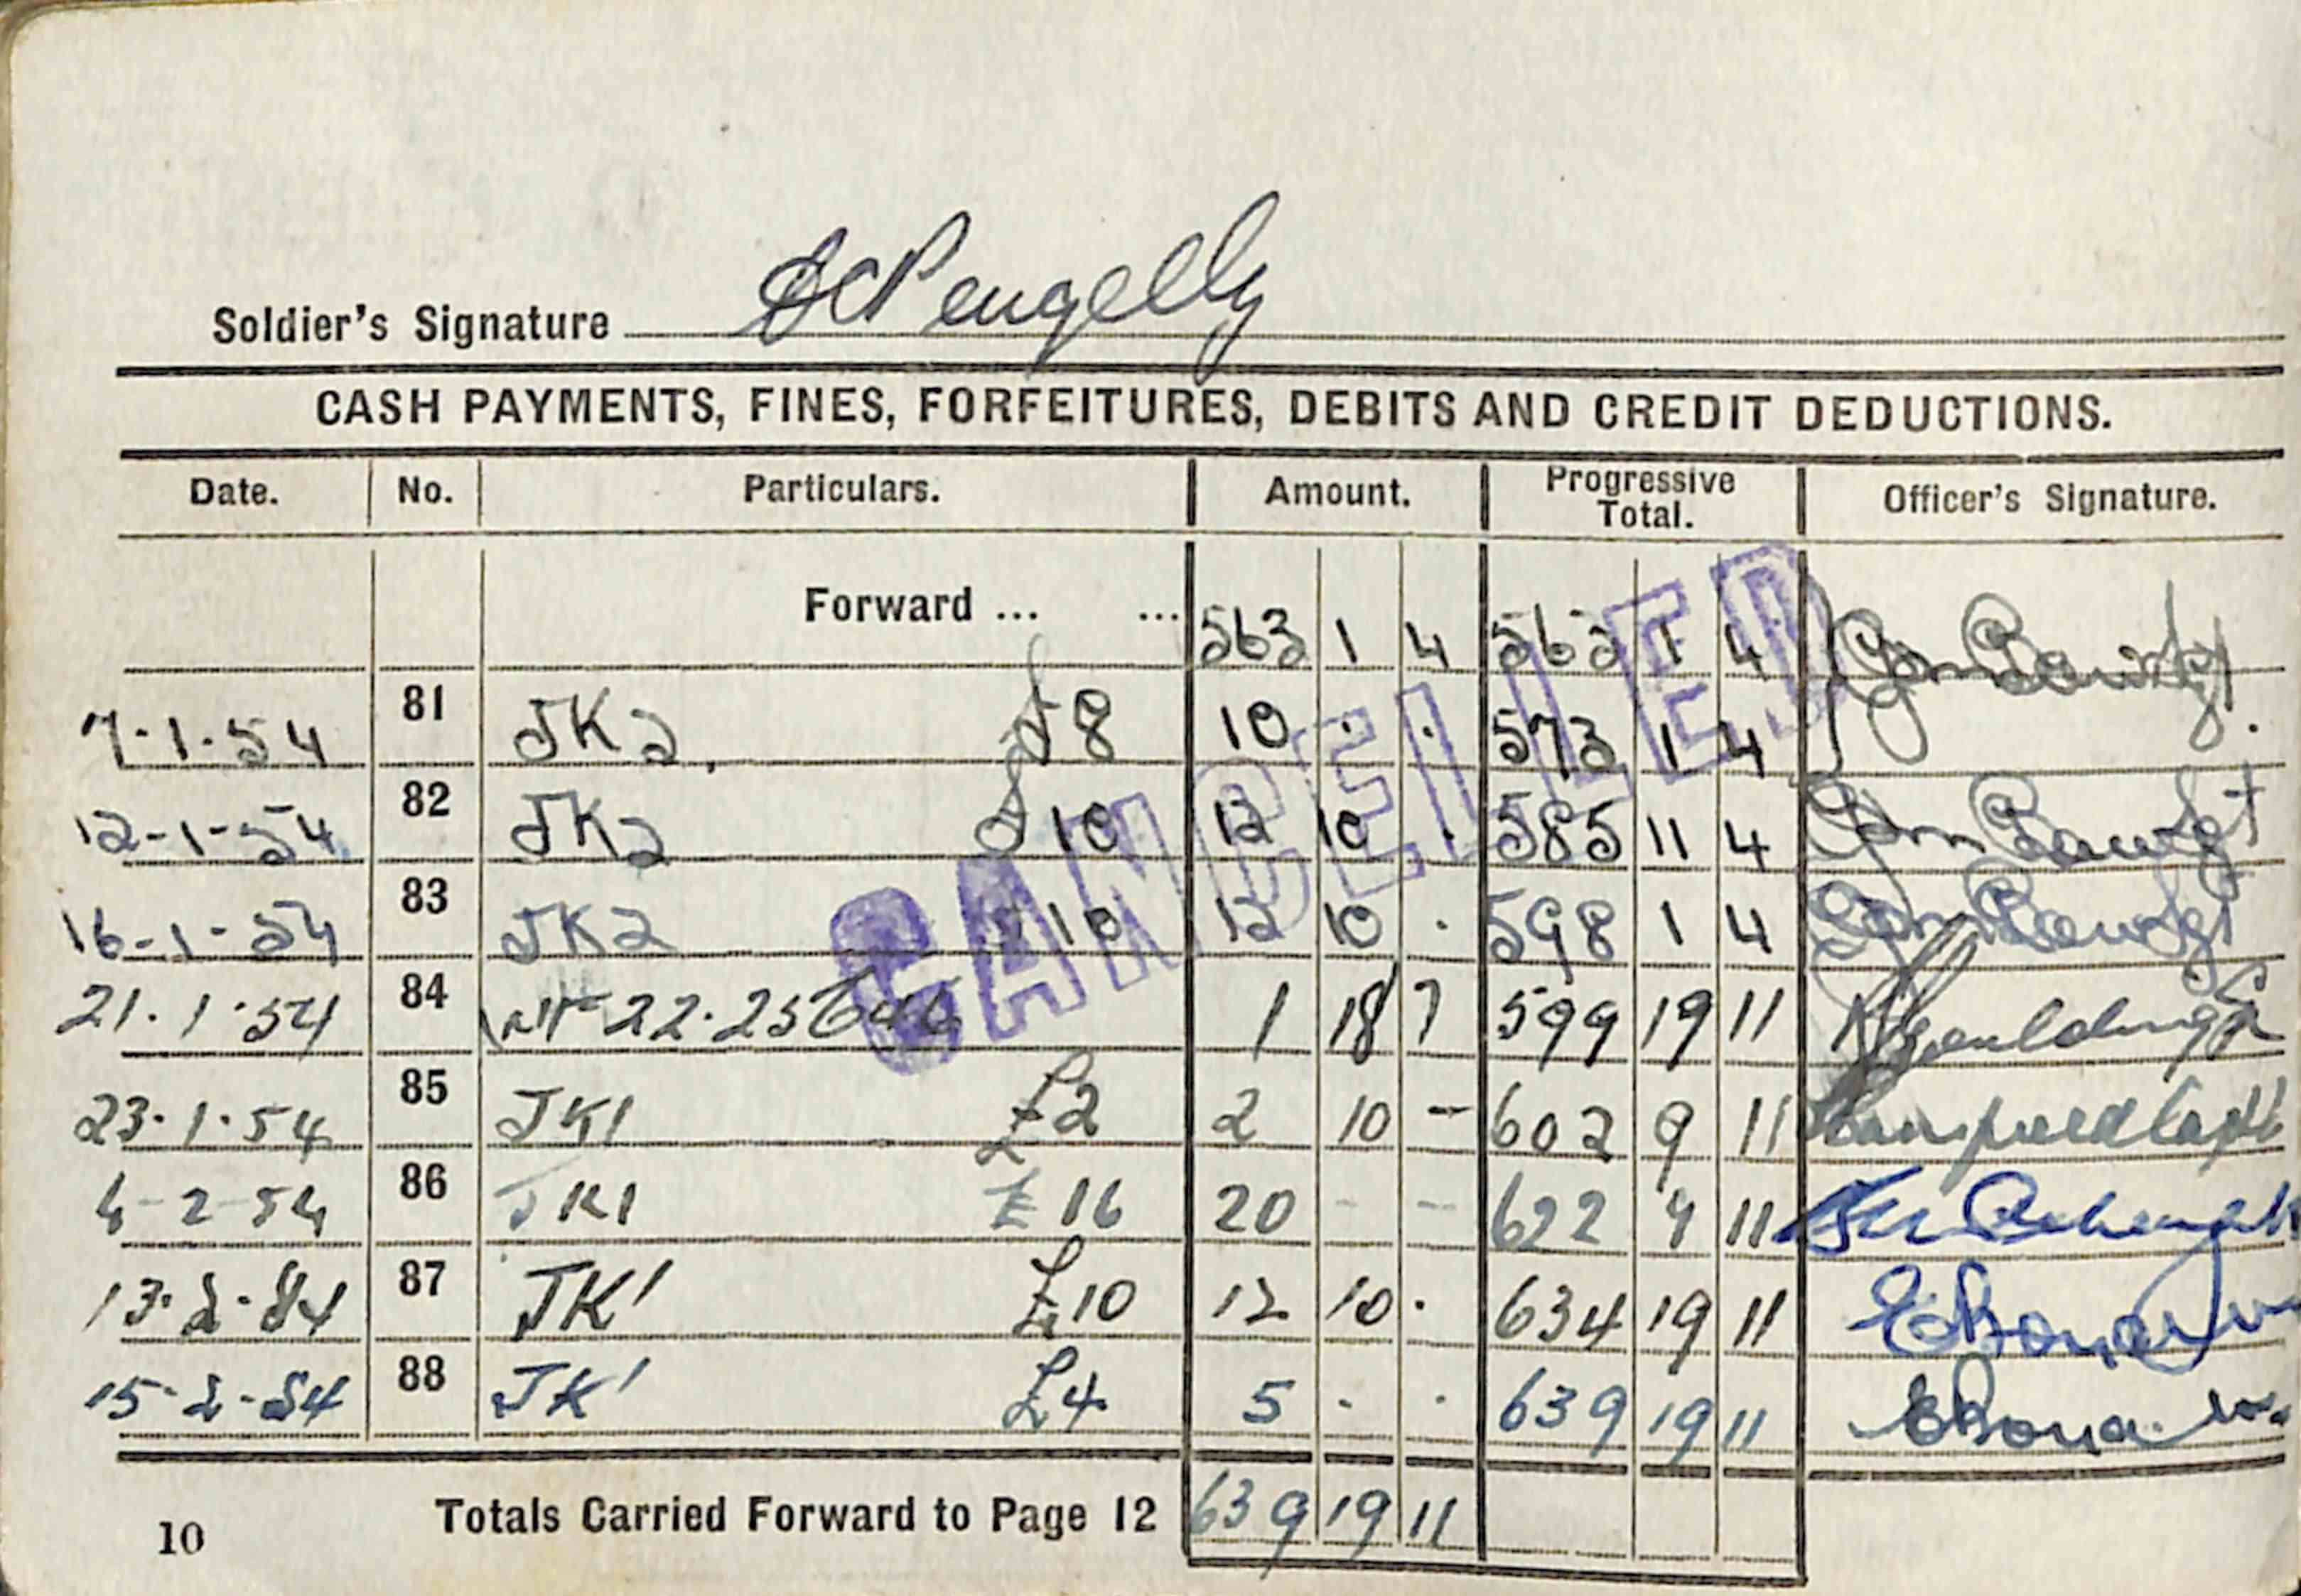 Soldier's Signature Pengelly
CASH PAYMENTS, FINES, FORFEITURES, DEBITS AND CREDIT DEDUCTIONS.
Date. No. Particulars. Amount. Progressive Total. Officer's Signature.
Forward ... ... 563 1 4 563 1 4
7.1.54 81 JK2. £8 10 . . 573 1 4
12-1-54 82 JK2 £10 12 10 . 585 11 4
16-1-54 83 JK2 £10 12 10 . 598 1 4
21.1.54 84 22.25 1 18 7 599 19 11
23.1.54 85 JK1 £2 2 10 - 602 9 11
6-2-54 86 JK1 £16 20 - - 622 9 11
13.2.54 87 JK1 £10 12 10 . 634 19 11
15-2-54 88 JK1 £4 5 - . 639 19 11
CANCELLED
Totals Carried Forward to Page 12 639 19 11
10